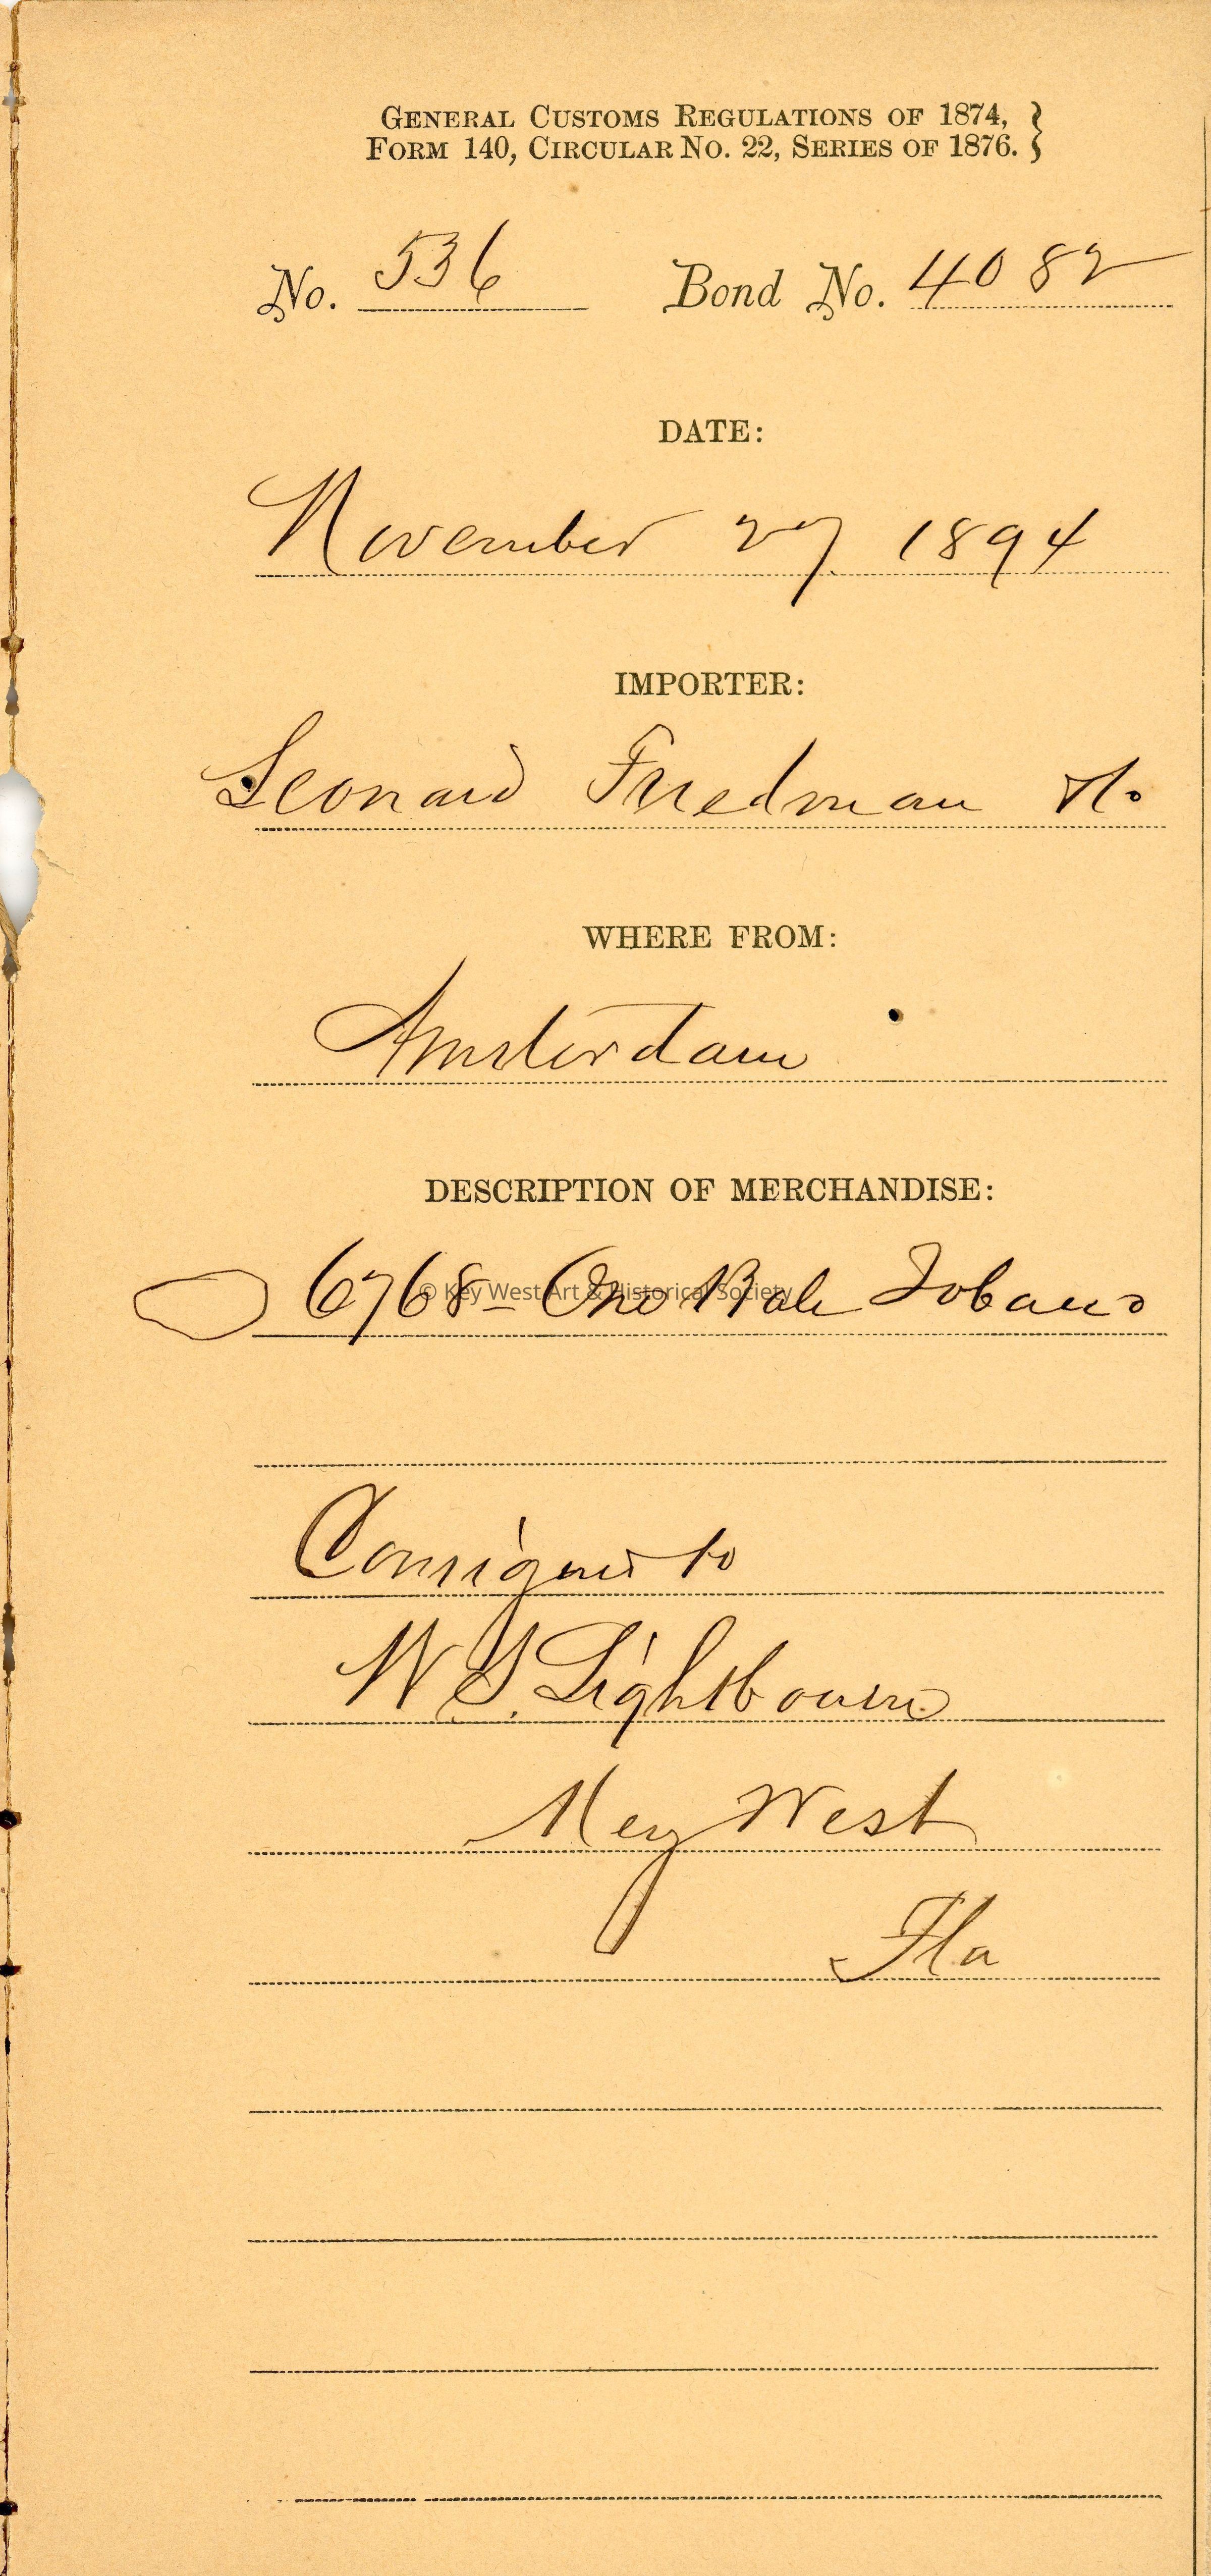 GENERAL CUSTOMS REGULATIONS OF 1874,
FORM 140, CIRCULAR NO. 22, SERIES OF 1876.
No. 536 Bond No. 4082
DATE:
November 27 1894
IMPORTER:
Leonard Friedman
WHERE FROM:
Amsterdam
DESCRIPTION OF MERCHANDISE:
6768 - One Bale Tobacco
© Key West Art & Historical Society
Consigned to
W. S. Lightbourn
Key West
Fla